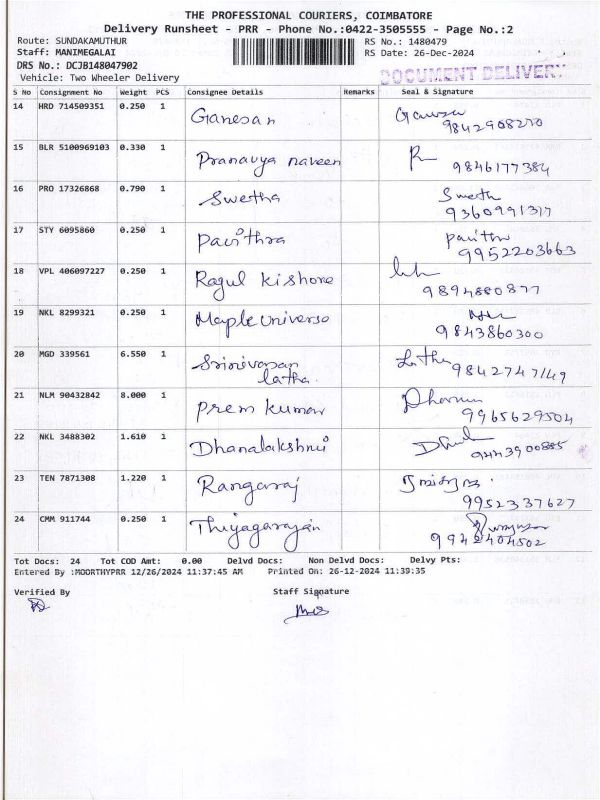 THE PROFESSIONAL COURIERS, COIMBATORE
Delivery Runsheet - PRR - Phone No.:0422-3505555 - Page No.:2
Route: SUNDAKAMUTHUR RS No.: 1480479
Staff: MANIMEGALAI RS Date: 26-Dec-2024
DRS No.: DCJB148047902
DOCUMENT DELIVERY
Vehicle: Two Wheeler Delivery
S No Consignment No Weight PCS Consignee Details Remarks Seal & Signature
14 HRD 714509351 0.250 1 Ganesan
9842908270
15 BLR 5100969103 0.330 1 Pranavya naveen
9846177384
16 PRO 17326868 0.790 1 Swetha Sweth
9360991317
17 STY 6095860 0.250 1 Pavithra Pavithr
9952203663
18 VPL 406097227 0.250 1 Ragul kishore
9894880877
19 NKL 8299321 0.250 1 Maple Universe
9843860300
20 MGD 339561 6.550 1 Srinivasan Latha
latha. 9842747149
21 NLM 90432842 8.000 1 Prem kumar
9965629504
22 NKL 3488302 1.610 1 Dhanalakshmi
9443900885
23 TEN 7871308 1.220 1 Rangaraj
9952337627
24 CMM 911744 0.250 1 Thiyagarajan
9942404502
Tot Docs: 24 Tot COD Amt: 0.00 Delvd Docs: Non Delvd Docs: Delvy Pts:
Entered By :MOORTHYPRR 12/26/2024 11:37:45 AM Printed On: 26-12-2024 11:39:35
Verified By Staff Signature